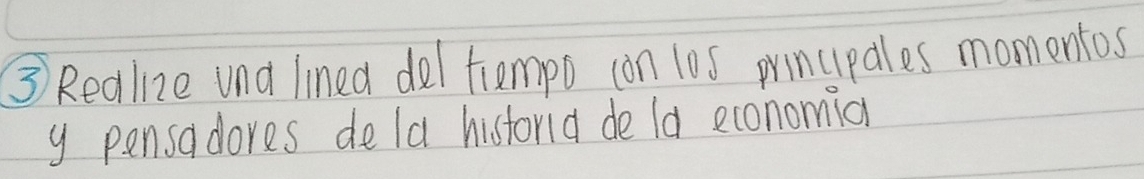 3 Realize una linea del tiempo con los principales momentos
y pensadores de la historia de la economia